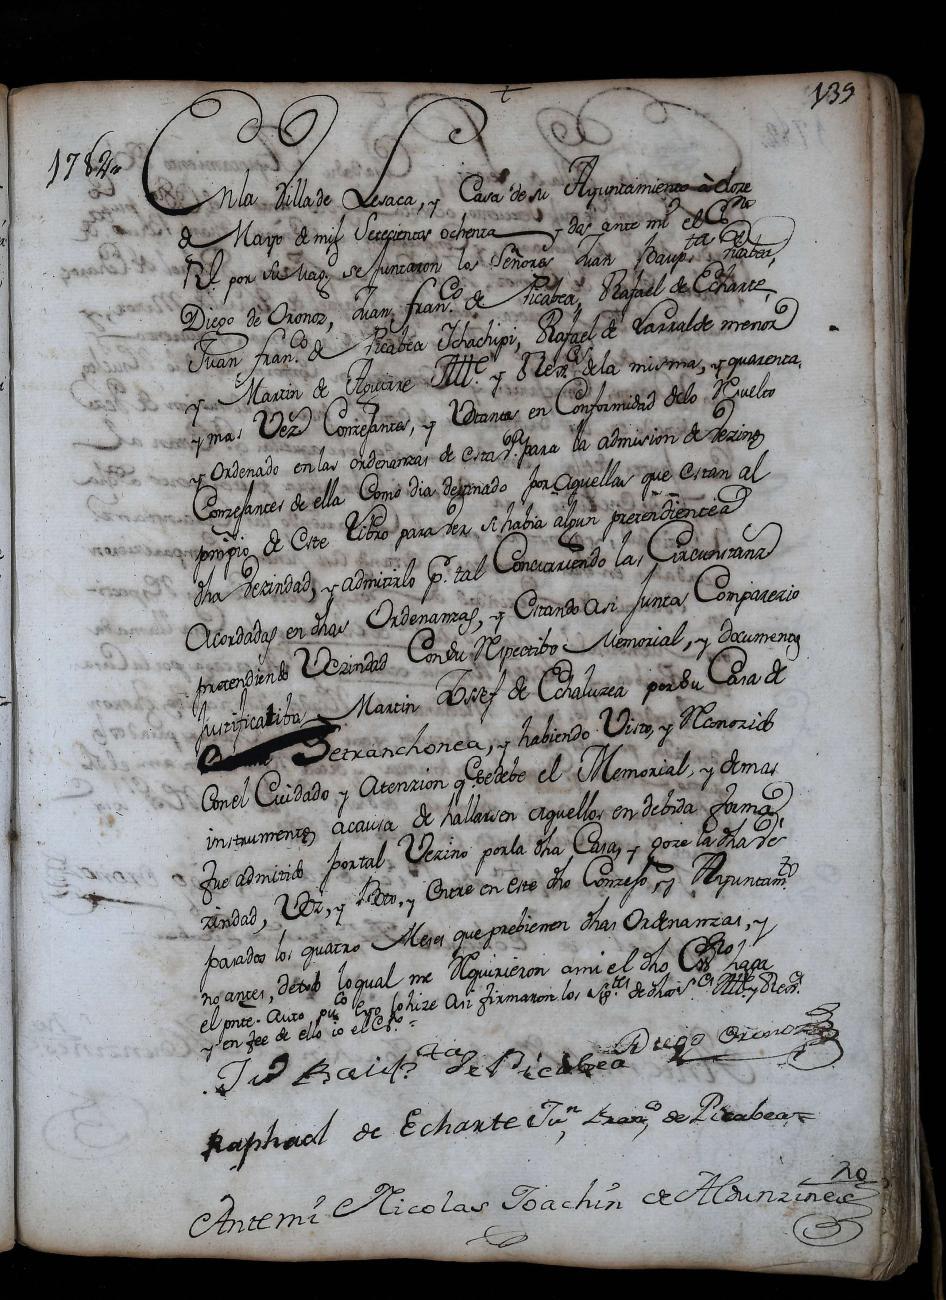 139
1782
En la Villa de Lesaca, y Casa de su Ayuntamiento à doze
de Mayo de mil Setecientos ochenta y dos ante mi el Essno
Rl. por su Mag. se juntaron los Señores Juan Baupta de Picabea,
Diego de Oronoz, Juan Franco. de Picabea, Rafael de Echarte,
Juan Franco. de Picabea Ichachipi, Rafael de Larralde menor
y Martin de Aguirre Alle. y Rexs. de la misma, y quarenta,
y mas Vezs Conzejantes, y Votantes en Conformidad de lo Rsuelto
y Ordenado en las ordenanzas de esta Va. para la admision de Vezinos
Conzejantes de ella Como dia destinado por aquellas que estan al
prinpio de este Libro para ver si habia algun pretendiente a
dha Vezindad, y admitirlo pr. tal Concurriendo las Circunstans
Acordadas en dhas Ordenanzas, y Estando asi Juntos Comparezio
pretendiendo Vezindad Con su Rspectibo Memorial, y documentos
Justificatibos Martin Josef de Echaluzea por su Casa de
Petranchonea, y habiendo Visto, y Rconozido
con el Cuidado y Atenzion qe. se debe el Memorial, y demas
instrumentos acausa de hallarsen aquellos en debida forma
fue admitido por tal Vezino por la dha Casa, y goze la dha Ve
zindad, Voz, y Voto, y Entre en este dho Conzejo, y Ayuntamto
pasados los quatro Meses que prebienen dhas Ordenanzas, y
no antes, de todo lo qual me Rquirieron a mi el dho Essno haga
el pnte. Auto puco. e yo lo hize Asi firmaron los de dhos Ss. Alle. y Rexs.
y en fee de ello io el Essno.
Jun Baupta de Picabea Diego Oronoz
Raphael de Echarte Jun, Franco, de Picabea
Ante mi Nicolas Joachin de Aldunzin esno